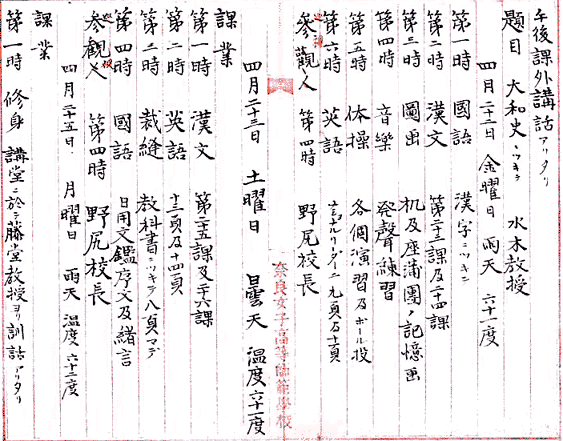 午後課外講話アリタリ
題目 大和史ニツキテ 水木教授
四月二十二日 金曜日 雨天 六十一度
第一時 國語 漢字ニツキテ
第二時 漢文 第二十三課及二十四課
第三時 圖畫 机及座蒲團ノ記憶畫
第四時 音樂 発聲練習
第五時 体操 各個演習及ボール投
第六時 英語 九頁及十頁
参觀人 第四時 野尻校長
四月二十三日 土曜日 曇天 温度六十一度
奈良女子高等師範學校
課業
第一時 漢文 第二十五課及二十六課
第二時 英語 十三頁及十四頁
第三時 裁縫 教科書ニツキテ八頁マデ
第四時 國語 日用文鑑序文及緒言
参觀人 第四時 野尻校長
四月二十五日 月曜日 雨天 温度六十二度
課業
第一時 修身 講堂ニ於テ藤堂教授ヨリ訓話アリタリ